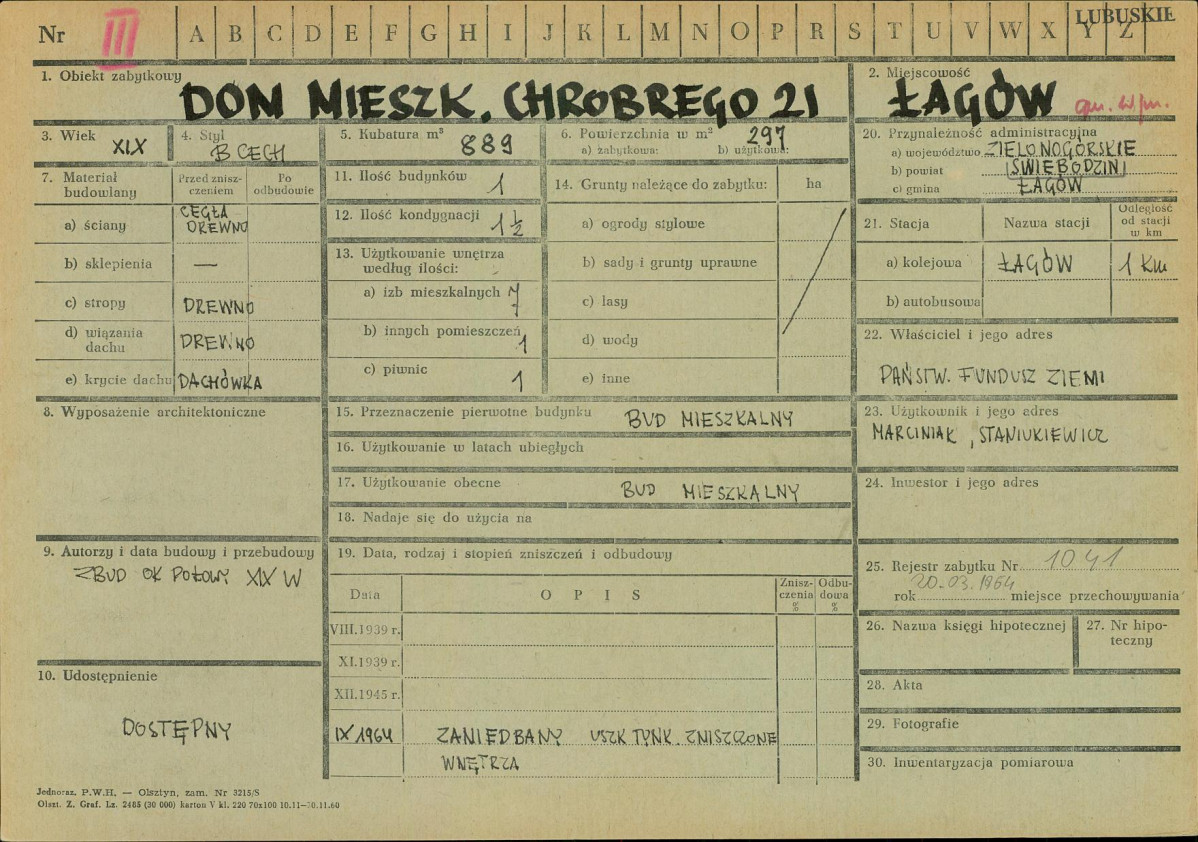 Nr III A B C D E F G H I J K L M N O P R S T U V W X Y Z LUBUSKIE
1. Obiekt zabytkowy
DOM MIESZK. CHROBREGO 21
2. Miejscowość
ŁAGÓW
3. Wiek XIX
4. Styl B CECH
5. Kubatura m³ 889
6. Powierzchnia w m² 297
a) zabytkowa: b) użytkowa:
7. Materiał budowlany
Przed znisz-
czeniem
Po
odbudowie
a) ściany CEGŁA
DREWNO
b) sklepienia —
c) stropy DREWNO
d) wiązania
dachu DREWNO
e) krycie dachu DACHÓWKA
8. Wyposażenie architektoniczne
9. Autorzy i data budowy i przebudowy
ZBUD OK POŁOWY XIX W
10. Udostępnienie
DOSTĘPNY
11. Ilość budynków 1
12. Ilość kondygnacji 1 ½
13. Użytkowanie wnętrza
według ilości:
a) izb mieszkalnych 7
b) innych pomieszczeń 1
c) piwnic 1
14. Grunty należące do zabytku: ha
a) ogrody stylowe
b) sady i grunty uprawne
c) lasy
d) wody
e) inne
15. Przeznaczenie pierwotne budynku BUD MIESZKALNY
16. Użytkowanie w latach ubiegłych
17. Użytkowanie obecne BUD MIESZKALNY
18. Nadaje się do użycia na
19. Data, rodzaj i stopień zniszczeń i odbudowy
Data OPIS
Znisz-
czenia
%
Odbu-
dowa
%
VIII.1939 r.
XI.1939 r.
XII.1945 r.
IX 1964 ZANIEDBANY USZK TYNK. ZNISZCZONE
WNĘTRZA
20. Przynależność administracyjna
a) województwo ZIELONOGÓRSKIE
b) powiat ŚWIEBODZIN
c) gmina ŁAGÓW
21. Stacja Nazwa stacji
Odległość
od stacji
w km
a) kolejowa ŁAGÓW 1 km
b) autobusowa
22. Właściciel i jego adres
PAŃSTW. FUNDUSZ ZIEMI
23. Użytkownik i jego adres
MARCINIAK, STANIUKIEWICZ
24. Inwestor i jego adres
25. Rejestr zabytku Nr 1041
rok 20.03.1964 miejsce przechowywania
26. Nazwa księgi hipotecznej
27. Nr hipo-
teczny
28. Akta
29. Fotografie
30. Inwentaryzacja pomiarowa
Jednoraz. P.W.H. — Olsztyn, zam. Nr 3215/S
Olszt. Z. Graf. Lz. 2485 (30 000) karton V kl. 220 70x100 10.11—30.11.60